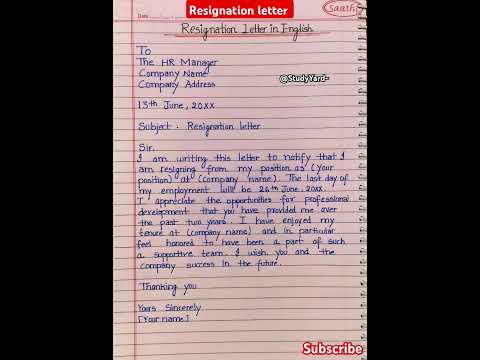 Resignation letter
Saathi
Date
Resignation Letter in English
To
The HR Manager
Company Name
Company Address
@StudyYard-
13th June, 20XX
Subject : Resignation letter
Sir.
I am writing this letter to notify that I
am resigning from my position as (Your
position) at (Company name). The last day of
my employment will be 26th June, 20xx.
I appreciate the opportunities for professional
development that you have provided me over
the past two years. I have enjoyed my
tenure at (company name) and in particular
feel honored to have been a part of such
a supportive team. I wish you and the
company success in the future.
Thanking you
Yours Sincerely
[Your name]
Subscribe